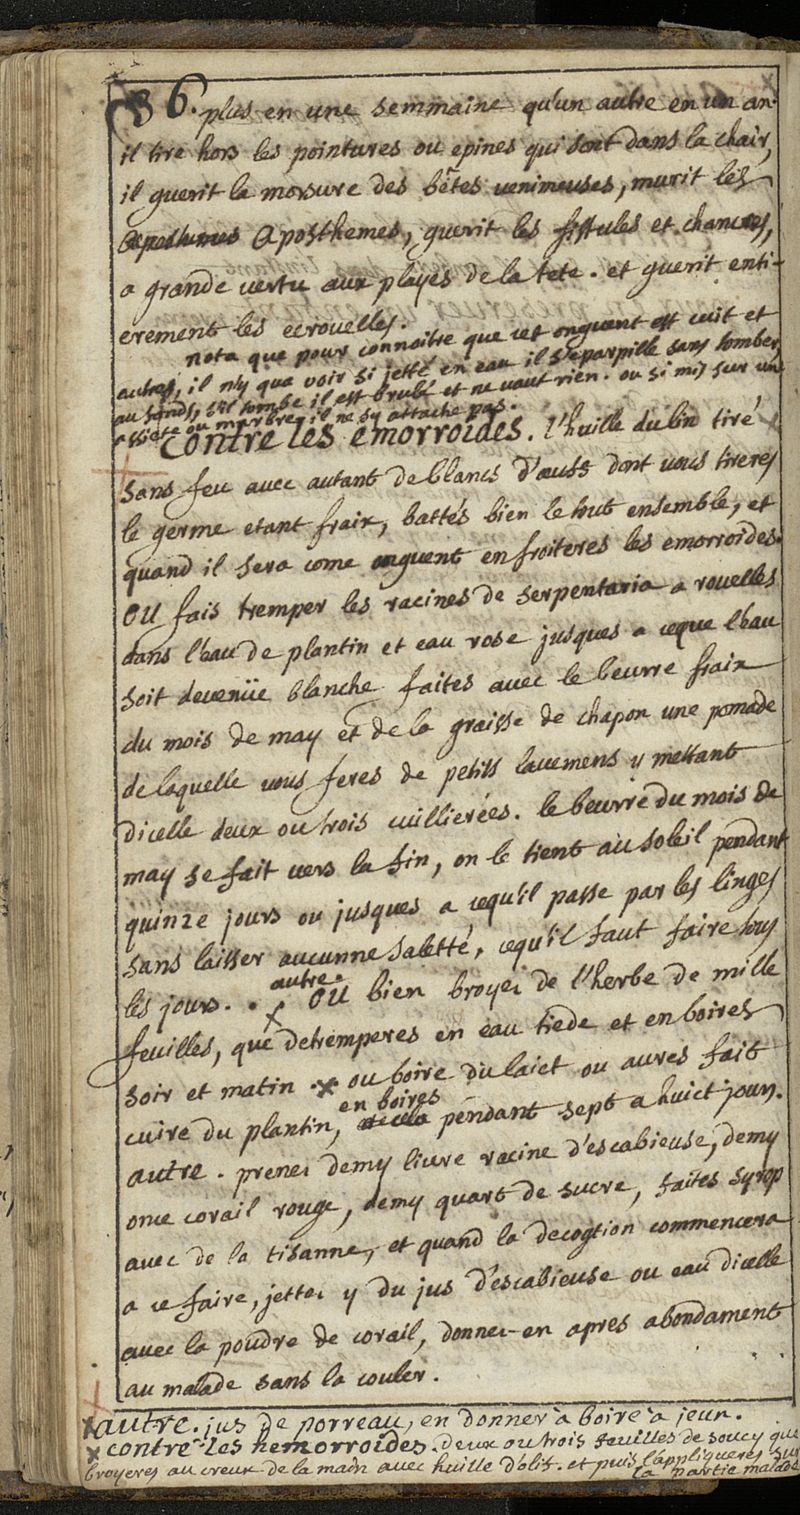 36. plus en une semmaine qu'un autre en un an.
il tire hors les pointures ou epines qui sont dans la chair,
il guerit la morsure des bêtes venimeuses, murit les
Aposthemes, guerit les fistules et chancres,
a grande vertu aux playes de la tete. et guerit enti-
erement les ecrouelles.
nota que pour connoitre que cet onguent est cuit et
autres, il n'y qua voir si jetté en eau il s'eparpille sans tomber
au fonds, s'il tombe il est brulé et ne vaut rien. ou si mis sur un
assiete ou marbre il ne sy attache pas.
Contre les emorroides. l'huille du lin tiré
sans feu avec autant de blancs d'œufs dont vous tireres
le germe etant fraix, battés bien le tout ensemble, et
quand il sera come onguent en froiteres les emorroides.
OU fais tremper les racines de serpentaria a rouelles
dans l'eau de plantin et eau rose jusques a ceque l'eau
soit devenüe blanche faites avec le beurre fraix
du mois de may et de la graisse de chapon une pomade
de laquelle vous feres de petits lavemens y mettant
dicelle deux ou trois cuillierées. le beurre du mois de
may se fait vers la fin, on le tient au soleil pendant
quinze jours ou jusques a cequ'il passe par les linges
sans laisser aucunne saletté, cequ'il faut faire tous
les jours. autre. OU bien broyez de l'herbe de mille
feuilles, que detremperes en eau tiede et en boires
soir et matin. ou boire du laict ou aures fait
cuire du plantin, en boires pendant sept a huict jours.
autre. prenez demy livre racine d'escabieuse, demy
once corail rouge, demy quart de sucre, faites syrop
avec de la tisanne, et quand la decogtion commencera
a ce faire, jettez y du jus d'escabieuse ou eau dicelle
avec la poudre de corail, donnez-en apres abondament
au malade sans la couler.
autre. jus de porreau, en donner a boire a jeun.
contre les hemorroides. deux ou trois feuilles de soucy que
broyeres au creux de la main avec huille d'olif. et puis l'appliqueres sur
la partie malade